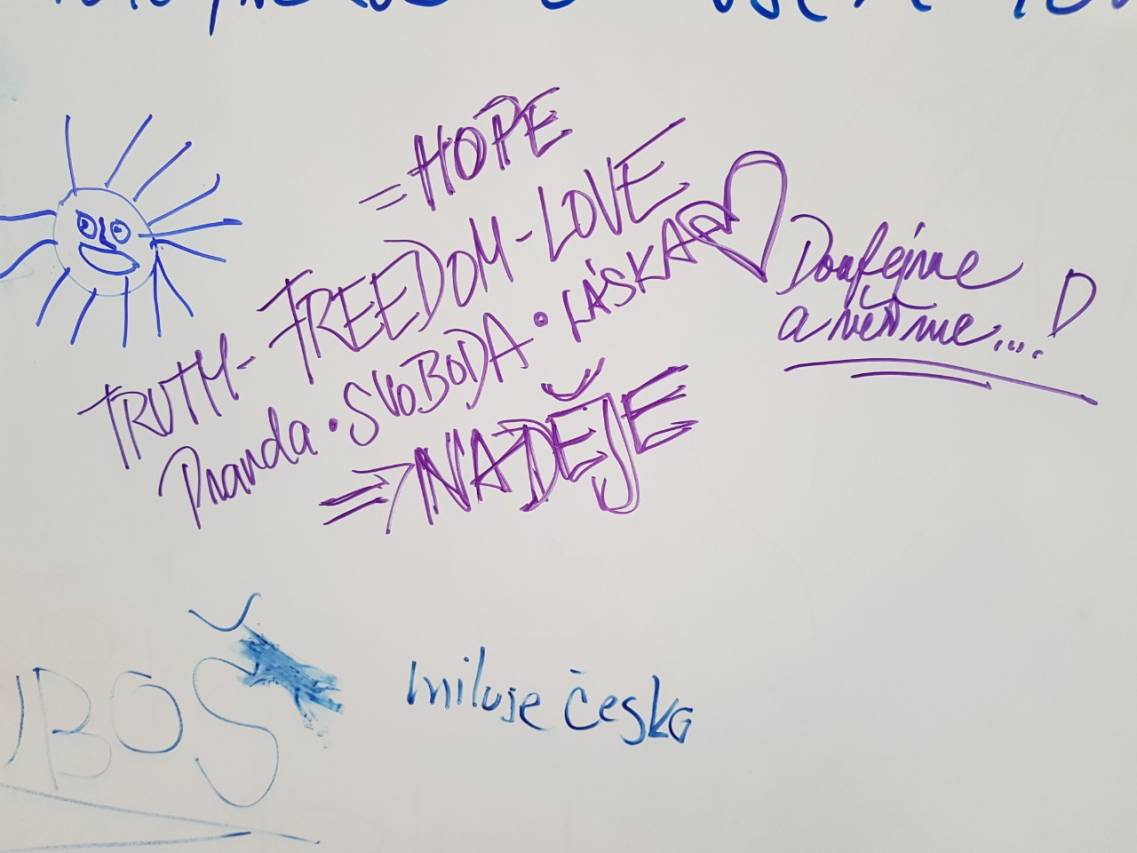 = HOPE
TRUTH - FREEDOM - LOVE
Pravda • SVOBODA • LÁSKA
⇒ NADĚJE
Doufejme
a věřme...!
BOŠ
miluje česko